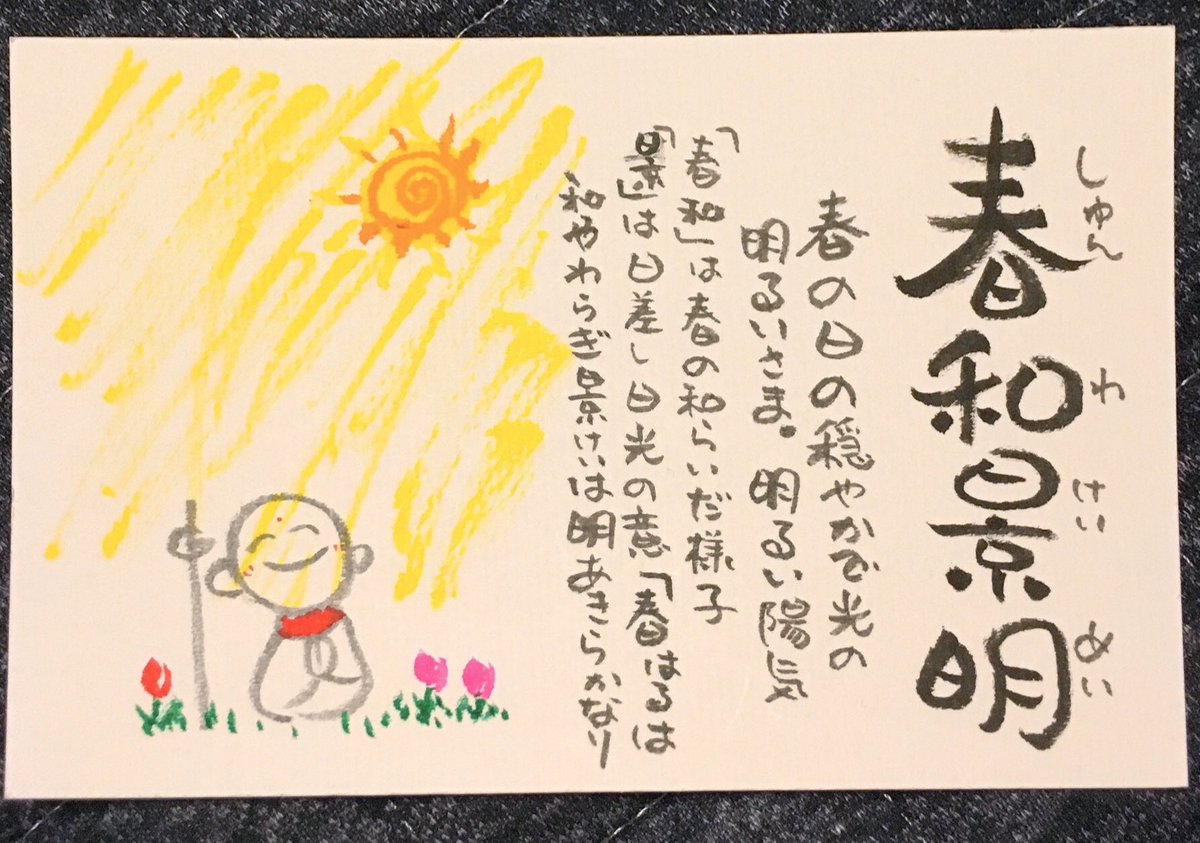 春和景明
しゅん わ けい めい
春の日の穏やかで光の
明るいさま。明るい陽気
「春和」は春の和らいだ様子
「景」は日差し日光の意「春はるは
和やわらぎ景けいは明あきらかなり